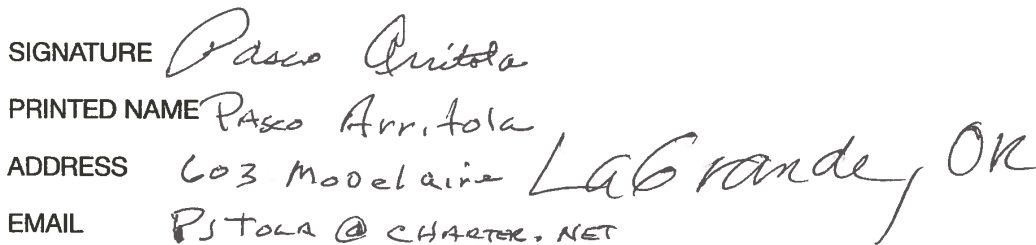 SIGNATURE Pasco Arritola
PRINTED NAME Pasco Arritola
ADDRESS 603 Modelaire LaGrande, OR
EMAIL PJTOLA @ CHARTER.NET